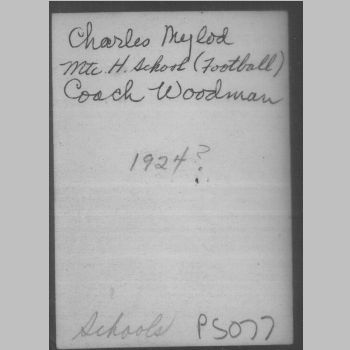 Charles Mylod
Mtc. H. School (Football)
Coach Woodman
1924?
Schools PS077